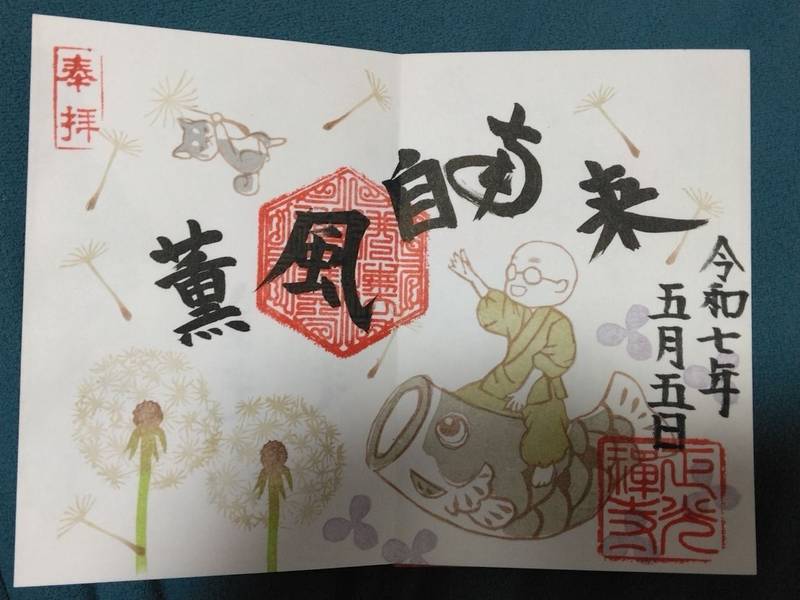 奉拝
薫風自南来
令和七年
五月五日
正光
禪寺